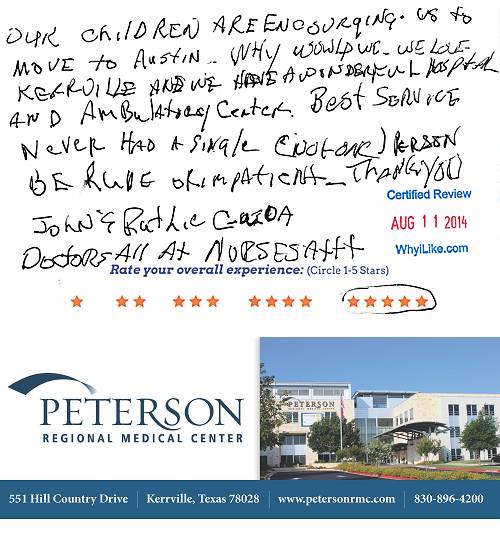 OUR ChilDREN ARE ENCOURGING. US to
MOVE to AUSTIN - WHY WOULD WE - WE LOVE
KERRVILLE AND WE HAVE A WONDERFUL HOSPITAL
AND AMBULATORY CENTER. BEST SERVICE
NEVER HAD A SINGLE (NOT ONE) PERSON
BE RUDE OR IMPATIENT - THANK YOU
Certified Review
JOHN & RUTHIE
AUG 11 2014
DOCTORS All At NURSES
WhyiLike.com
Rate your overall experience: (Circle 1-5 Stars)
PETERSON
REGIONAL MEDICAL CENTER
PETERSON
REGIONAL MEDICAL CENTER
551 Hill Country Drive | Kerrville, Texas 78028 | www.petersonrmc.com | 830-896-4200